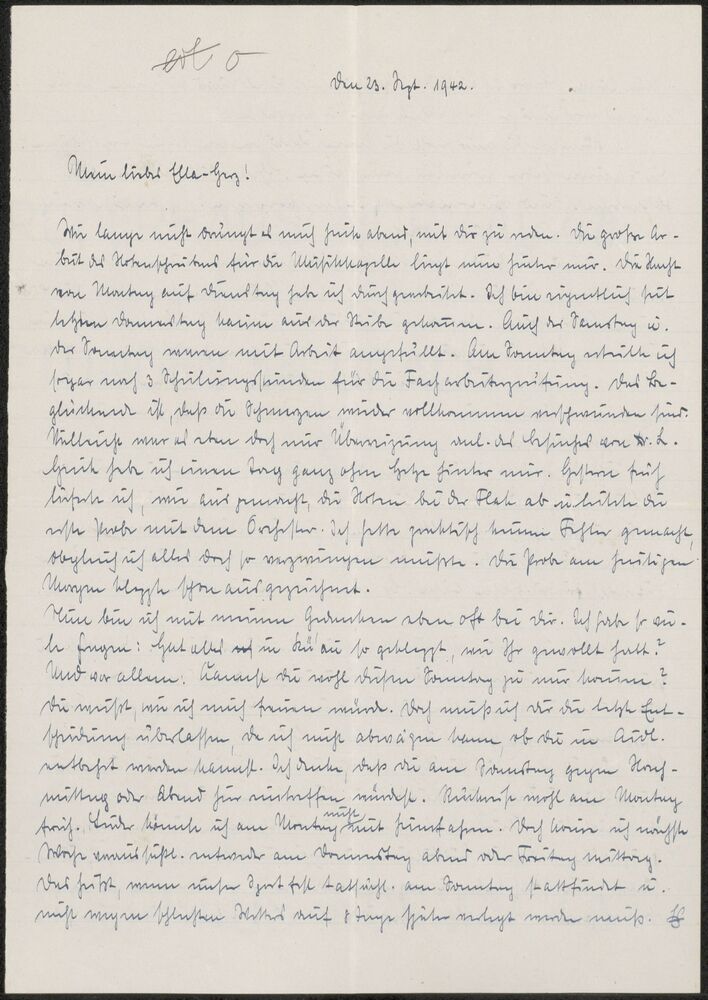 Den 23. Sept. 1942.
Mein liebes Ella-Herz!
Wie lange nicht drängt es mich heute abend, mit dir zu reden. Die große Ar-
beit des Notenschreibens für die Musikkapelle liegt nun hinter mir. Die Nacht
von Montag auf Dienstag habe ich durchgearbeitet. Ich bin eigentlich seit
letzten Donnerstag kaum aus der Stube gekommen. Auch der Samstag u.
der Sonntag waren mit Arbeit angefüllt. Am Sonntag erteilte ich
sogar noch 3 Schulungsstunden für die Facharbeiterprüfung. Das Be-
glückende ist, daß die Schmerzen wieder vollkommen verschwunden sind.
Vielleicht war es eben doch nur Überreizung anl. des Besuches von Dr. L.
Heute habe ich einen Tag ganz ohne Hetze hinter mir. Gestern früh
lieferte ich, wie ausgemacht, die Noten bei der Flak ab u. leitete die
erste Probe mit dem Orchester. Ich hatte praktisch keinen Fehler gemacht,
obgleich ich alles doch so erzwingen mußte. Die Probe am heutigen
Morgen klappte schon ausgezeichnet.
Nun bin ich mit meinen Gedanken eben oft bei dir. Ich habe so vie-
le Fragen: Hat alles in so geklappt, wie Ihr gewollt habt?
Und vor allem: Kannst du wohl diesen Sonntag zu mir kommen?
Du weißt, wie ich mich freuen würde. Doch muß ich dir die letzte Ent-
scheidung überlassen, da ich nicht abwägen kann, ob du in Aidl.
entbehrt werden kannst. Ich denke, daß du am Samstag gegen Nach-
mittag oder Abend hier eintreffen würdest. Rückreise wohl am Montag
früh. Leider könnte ich am Montag nicht mit heimfahren. Doch komme ich nächste
Woche voraussichtl. entweder am Donnerstag abend oder Freitag mittag.
Das heißt, wenn unser Sportfest tatsächl. am Sonntag stattfindet u.
nicht wegen schlechten Wetters auf 8 Tage später verlegt werden muß.